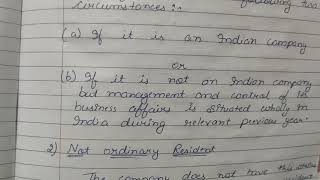 following two
circumstances :
(a) If it is an Indian company
or
(b) If it is not an Indian company
but management and control of its
business affairs is situated wholly in
India during relevant previous year.
2) Not ordinary Resident
The company does not have this